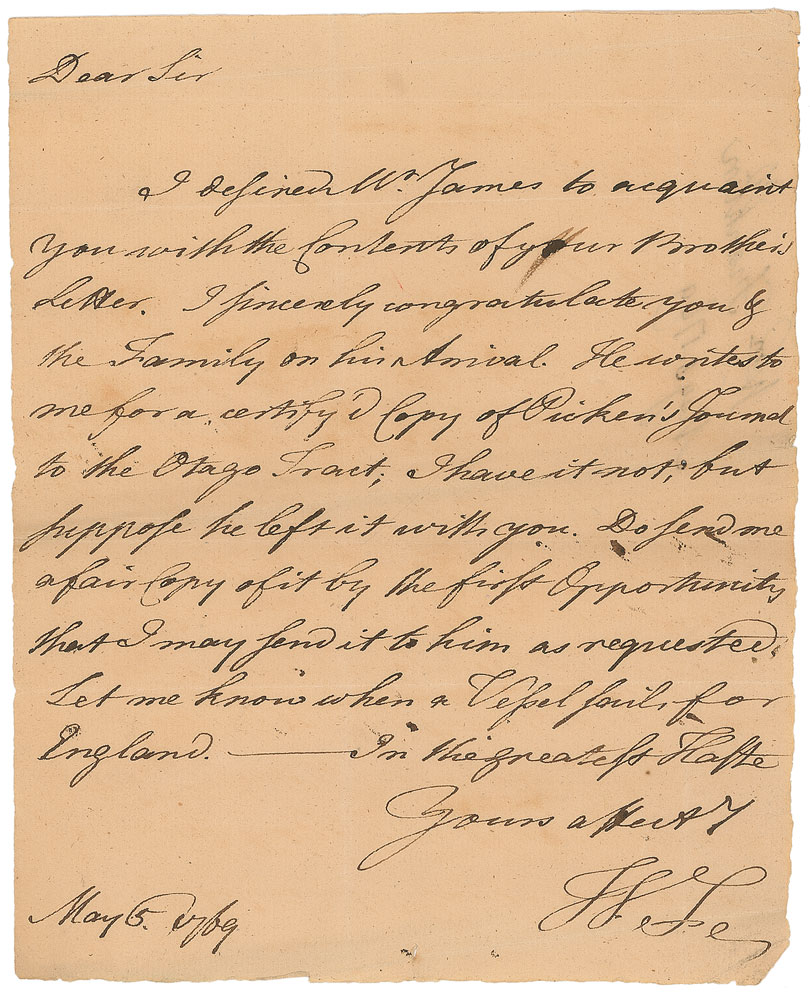 Dear Sir
I desired Wm. James to acquaint
you with the Contents of your Brother's
Letter. I sincerely congratulate you &
the Family on his Arrival. He writes to
me for a certify'd Copy of Picken's Journal
to the Otago Tract; I have it not, but
suppose he left it with you. Do send me
a fair Copy of it by the first Opportunity
that I may send it to him as requested.
Let me know when a Vessel sails for
England. — In the greatest Haste
Yours affectly
May 5. 1769